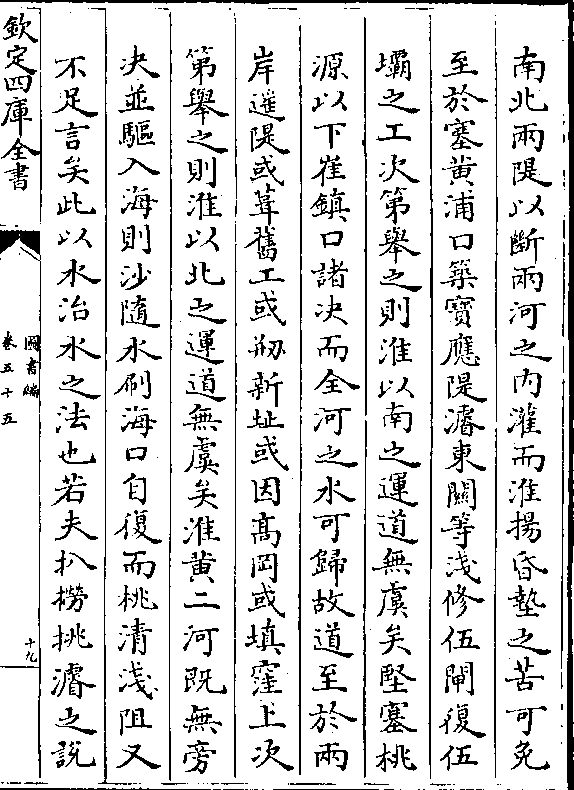 南北兩隄以斷兩河之内灌而淮揚昏墊之苦可免
至於塞黄浦口築寶應隄濬東關等淺修伍閘復伍
壩之工次第舉之則淮以南之運道無虞矣堅塞桃
源以下崔鎮口諸决而全河之水可歸故道至於兩
岸遥隄或葺舊工或剏新址或因髙岡或填窪上次
第舉之則淮以北之運道無虞矣淮黄二河既無旁
决並驅入海則沙隨水刷海口自復而桃清淺阻又
不足言矣此以水治水之法也若夫扒撈挑濬之說
欽定四庫全書
圖書編
卷五十五
十九